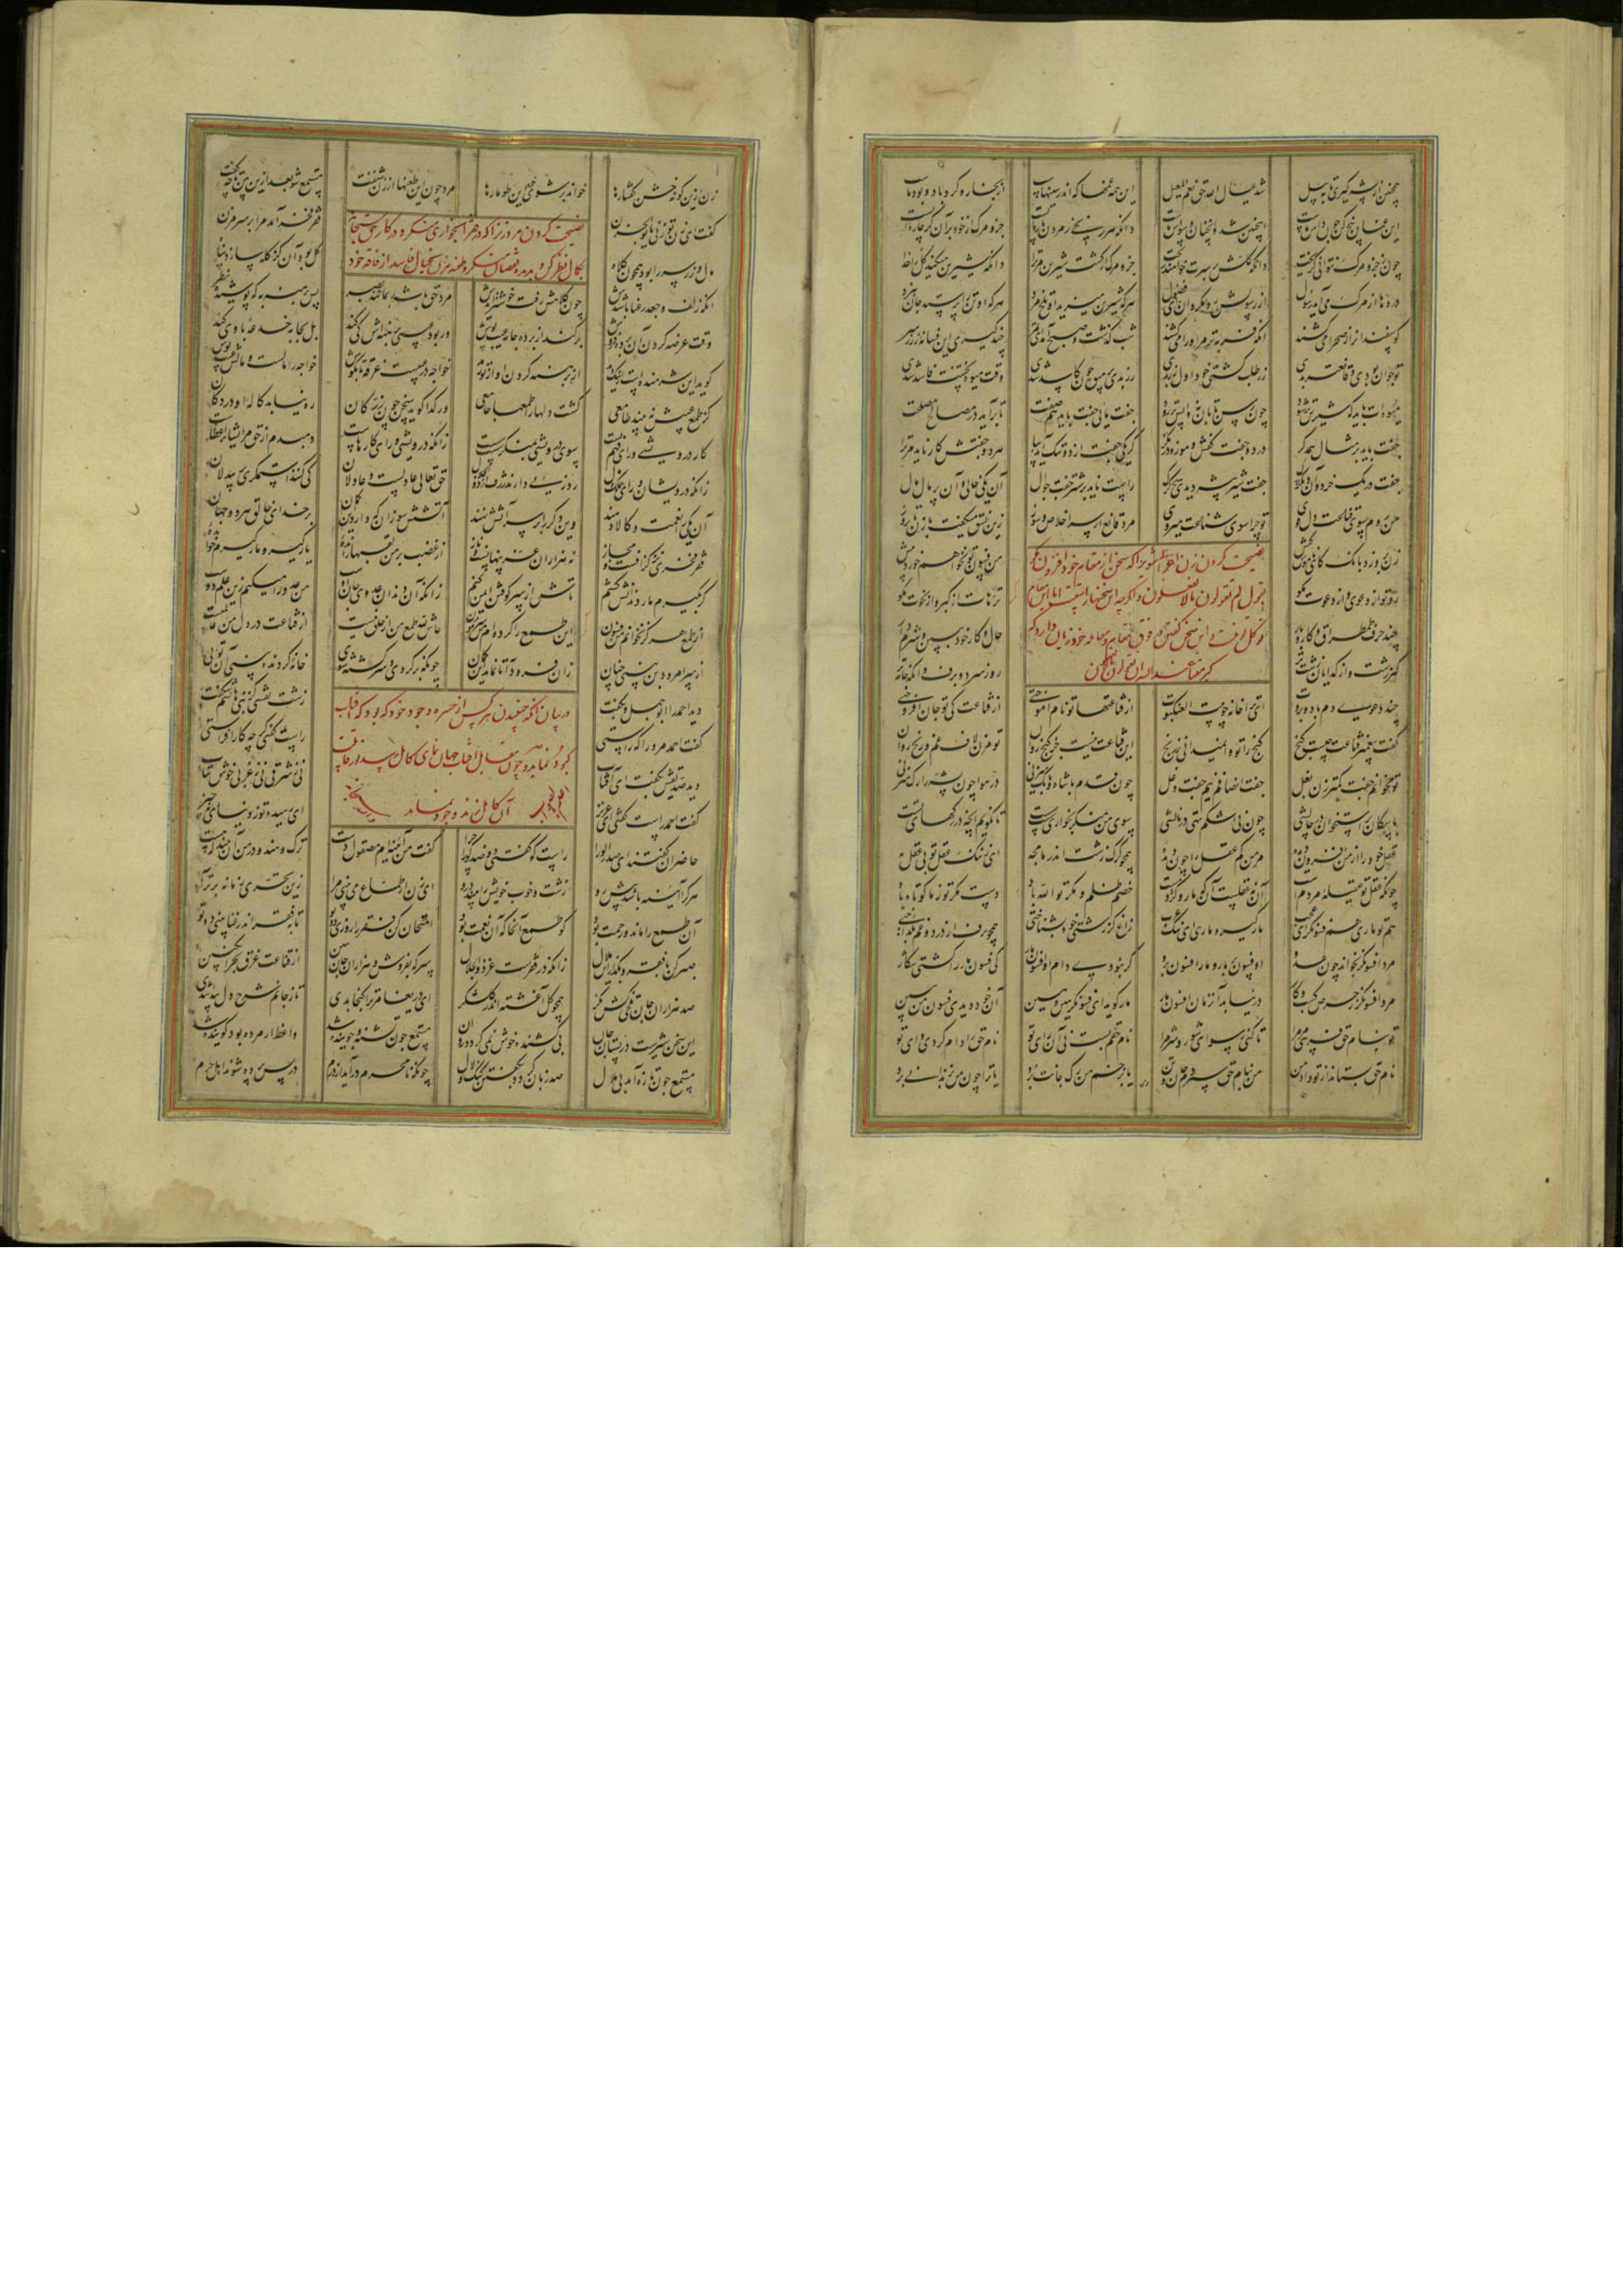 همچنین از پشه گیری تا به پیل شد عیال الله و حق نعم المعیل این همه غمها که اندر سینهاست از بخار و گرد باد و بود ماست
این غمان بیخ کن چون داس ماست اینچنین شد وانچنان وسواس ماست دانکه هر رنجی ز مردن پاره ایست جزو مرگ از خود بران گر چاره ایست
چون ز جزو مرگ نتوانی گریخت دانکه کلش بر سرت خواهند ریخت جزو مرگ ار گشت شیرین مر ترا دانکه شیرین میکند کل را خدا
دردها از مرگ می آید رسول از رسولش رو مگردان ای فضول هرکه شیرین میزید او تلخ مرد هرکه او تن را پرستد جان نبرد
گوسفندانرا ز صحرا میکشند آنکه فربه تر مر او را میکشند شب گذشت و صبح آمد ای قمر چند گیری این فسانه ز سر
تو جوان بودی و قانعتر بدی زر طلب گشتی خود اول زر بدی رز بدی پر میوه چون کاسد شدی وقت میوه پختنت فاسد شدی
میوه ات باید که شیرین تر شود چون رسن تابان نه واپس تر رود جفت مایی جفت باید هم صفت تا برآید در مصالح مصلحت
جفت باید بر مثال همدگر در دو جفت کفش و موزه در نگر گر یکی کفش از دو تنگ آید بپا هر دو جفتش کار ناید مر ترا
جفت در یک خرد وان دیگر بزرگ جفت شیر بیشه دیدی هیچ گرگ راست ناید بر شتر جفت جوال آن یکی خالی و آن پر مال مال
من روم سوی قناعت دل قوی تو چرا سوی شناعت میروی مرد قانع از سر اخلاص و سوز زین نسق میگفت با زن تا بروز
زن برو زد بانگ کای ناموس کیش من فسون تو نخواهم خورد بیش
نصیحت کردن زن شوی را که سخن از مقام خود افزون مگو
لم تقولون ما لا تفعلون اگرچه این سخنها راست است اما این مقام
توکل ترا نیست و این سخن گفتن فوق مقام و معامله خود زیان دارد که
کبر مقتا عند الله ان تقولوا
ترهات از دعوی و از دعوت مگو ترهات از کبر و از نخوت مگو
چند حرف طمطراق و کار و بار حال و کار خود ببین و شرم دار
کبر زشت و از گدایان زشت تر روز سرد و برف و آنگه جامه تر
چند دعوی و دم و باد و بروت ای ترا خانه چو بیت العنکبوت از قناعتها تو نام آموختی از قناعت کی تو جان افروختی
گفت پیغمبر قناعت چیست گنج گنج را تو وانمیدانی ز رنج این قناعت نیست جز گنج روان تو مزن لاف ای غم و رنج روان
تو مخوانم جفت کمتر زن بغل جفت انصافم نیم جفت دغل چون قدم با شاه و با بگ میزنی در هوا چون پشه را رگ میزنی
با سگان بر استخوان در چالشی چون نی اشکم تهی در نالشی سوی من منگر بخواری سست سست تا نگویم آنچه در رگهای تست
عقل خود را از من افزون دیده مر من کم عقل را چون دیده همچو گرگ زشت اندر ما مجه ای ز ننگ عقل تو بی عقل به
چونکه عقل تو عقیله مردم است آن نه عقلست آن که مار و کژدم است خصم ظلم و مکر تو الله باد دست مکر تو ز ما کوتاه باد
هم تو ماری هم فسونگر ای عجب مارگیر و ماری ای ننگ عرب زاغ گر زشتی خود بشناختی همچو برف از درد و غم بگداختی
مرد افسونگر بخواند چون عدو او فسون بر مار و مار افسون برو گر نبودی دام او افسون مار کی فسون مار را گشتی شکار
مرد افسونگر ز حرص کسب و کار در نیابد آن زمان افسون مار مار گوید ای فسونگر هین و هین آن خود دیدی فسون من ببین
تو بنام حق فریبی مر مرا تا کنی رسوای شور و شر مرا نام حقم بست نی آن رای تو نام حق را دام کردی وای تو
نام حق بستاند از تو داد من من بنام حق سپردم جان و تن یا بزخم من رگ جانت برد یا ترا چون من بزندانی برد
زن ازین گونه خشن گفتارها خواند بر شوی خود این طومارها مرد چون این طعنها از زن شنفت مستمع شو بعد ازین بین تا چه گفت
نصیحت کردن مرد زن را که در فقیران بخواری منگر و در کار حق سبحانه
بکمال نظر کن و بدیده نقصان منگر و طعنه مزن بخیال فاسد از فاقه خود
گفت ای زن تو زنی یا بوالحزن فقر فخر آمد مرا بر سر مزن
مال و زر سر را بود همچون کلاه کل بود آن کز کله سازد پناه
آنکه زلف و جعد رعنا باشدش چون کلاهش رفت خوشتر آیدش مرد حق باشد بمانند بصر پس برهنه به که پوشیده نظر
وقت عرضه کردن آن برده فروش برکند از برده جامه عیب پوش ور بود عیبی برهنه ش کی کند بل بجامه خدعه با وی کند
گوید این شرمنده است از نیک و بد از برهنه کردن او از تو رمد خواجه در عیبست غرقه تا بگوش خواجه را مالست و مالش عیب پوش
کز طمع عیبش نبیند طامعی گشت دلها را طمعها جامعی ور گدا گوید سخن چون زر کان ره نیابد کاله او در دکان
کار درویشی ورای فهم تست سوی درویشی بمنگر سست سست زانکه درویشی ورای کارهاست دمبدم از حق مر ایشانرا عطاست
زانکه درویشان ورای ملک و مال روزیی دارند ژرف از ذوالجلال حق تعالی عادلست و عادلان کی کنند استمگری بر بیدلان
آن یکی را نعمت و کالا دهند وین دگر را بر سر آتش نهند آتشش سوزان که دارد این گمان بر خدای خالق هر دو جهان
فقر فخری نز گزافست و مجاز نه هزاران عز پنهانست و ناز از غضب بر من لقبها رانده یارگیر و مارگیرم خوانده
گر بگیرم مار دندانش کنم تاش از سر کوفتن ایمن کنم زانکه آن دندان عدوی جان اوست من عدو را میکنم زین علم دوست
از طمع هرگز نخوانم من فسون این طمع را کرده ام من سرنگون حاش لله طمع من از خلق نیست از قناعت در دل من عالمیست
از سر امرود بن بینی چنان زان فرود آ تا نماند این گمان چونکه برگردی و سرگشته شوی خانه را گردنده بینی آن توی
در بیان آنکه جنبیدن هر کس از وجود خود که بود که آفتاب
کبود نماید و چون مقابل آفتاب جهان نمای کامل رسد
آن کامل
دید احمد را ابوجهل و بگفت زشت نقشی کز بنی هاشم شکفت
گفت احمد مر ورا که راستی راست گفتی گرچه کار افزاستی
دید صدیقش بگفت ای آفتاب نی ز شرقی نی ز غربی خوش بتاب
گفت احمد راست گفتی ای عزیز ای رهیده تو ز دنیای نه چیز
حاضران گفتند ای صدر الوری راست گو گفتی دو ضد گو را چرا گفت من آیینه ام مصقول دست ترک و هندو در من آن بیند که هست
هر که را آیینه باشد پیش رو زشت و خوب خویش را بیند درو ای زن ار طماع می بینی مرا زین تحری زنانه برتر آ
آن طمع را ماند و رحمت بود کو طمع آنجا که آن نعمت بود امتحان کن فقر را روزی دو تو تا بفقر اندر غنا بینی دو تو
صبر کن با فقر و بگذار این ملال زانکه در فقرست عز ذوالجلال سرکه مفروش و هزاران جان ببین از قناعت غرق بحر انگبین
صد هزاران جان تلخی کش نگر همچو گل آغشته اندر گلشکر ای دریغا مر ترا گنجا بدی تا ز جانم شرح دل پیدا شدی
این سخن شیرست در پستان جان بی کشنده خوش نمیگردد روان مستمع چون تشنه و جوینده شد واعظ ار مرده بود گوینده شد
مستمع چون تازه آمد بی ملال صد زبان گردد بگفتن گنگ و لال چونکه نامحرم درآید از درم در پس پرده شوند اهل حرم